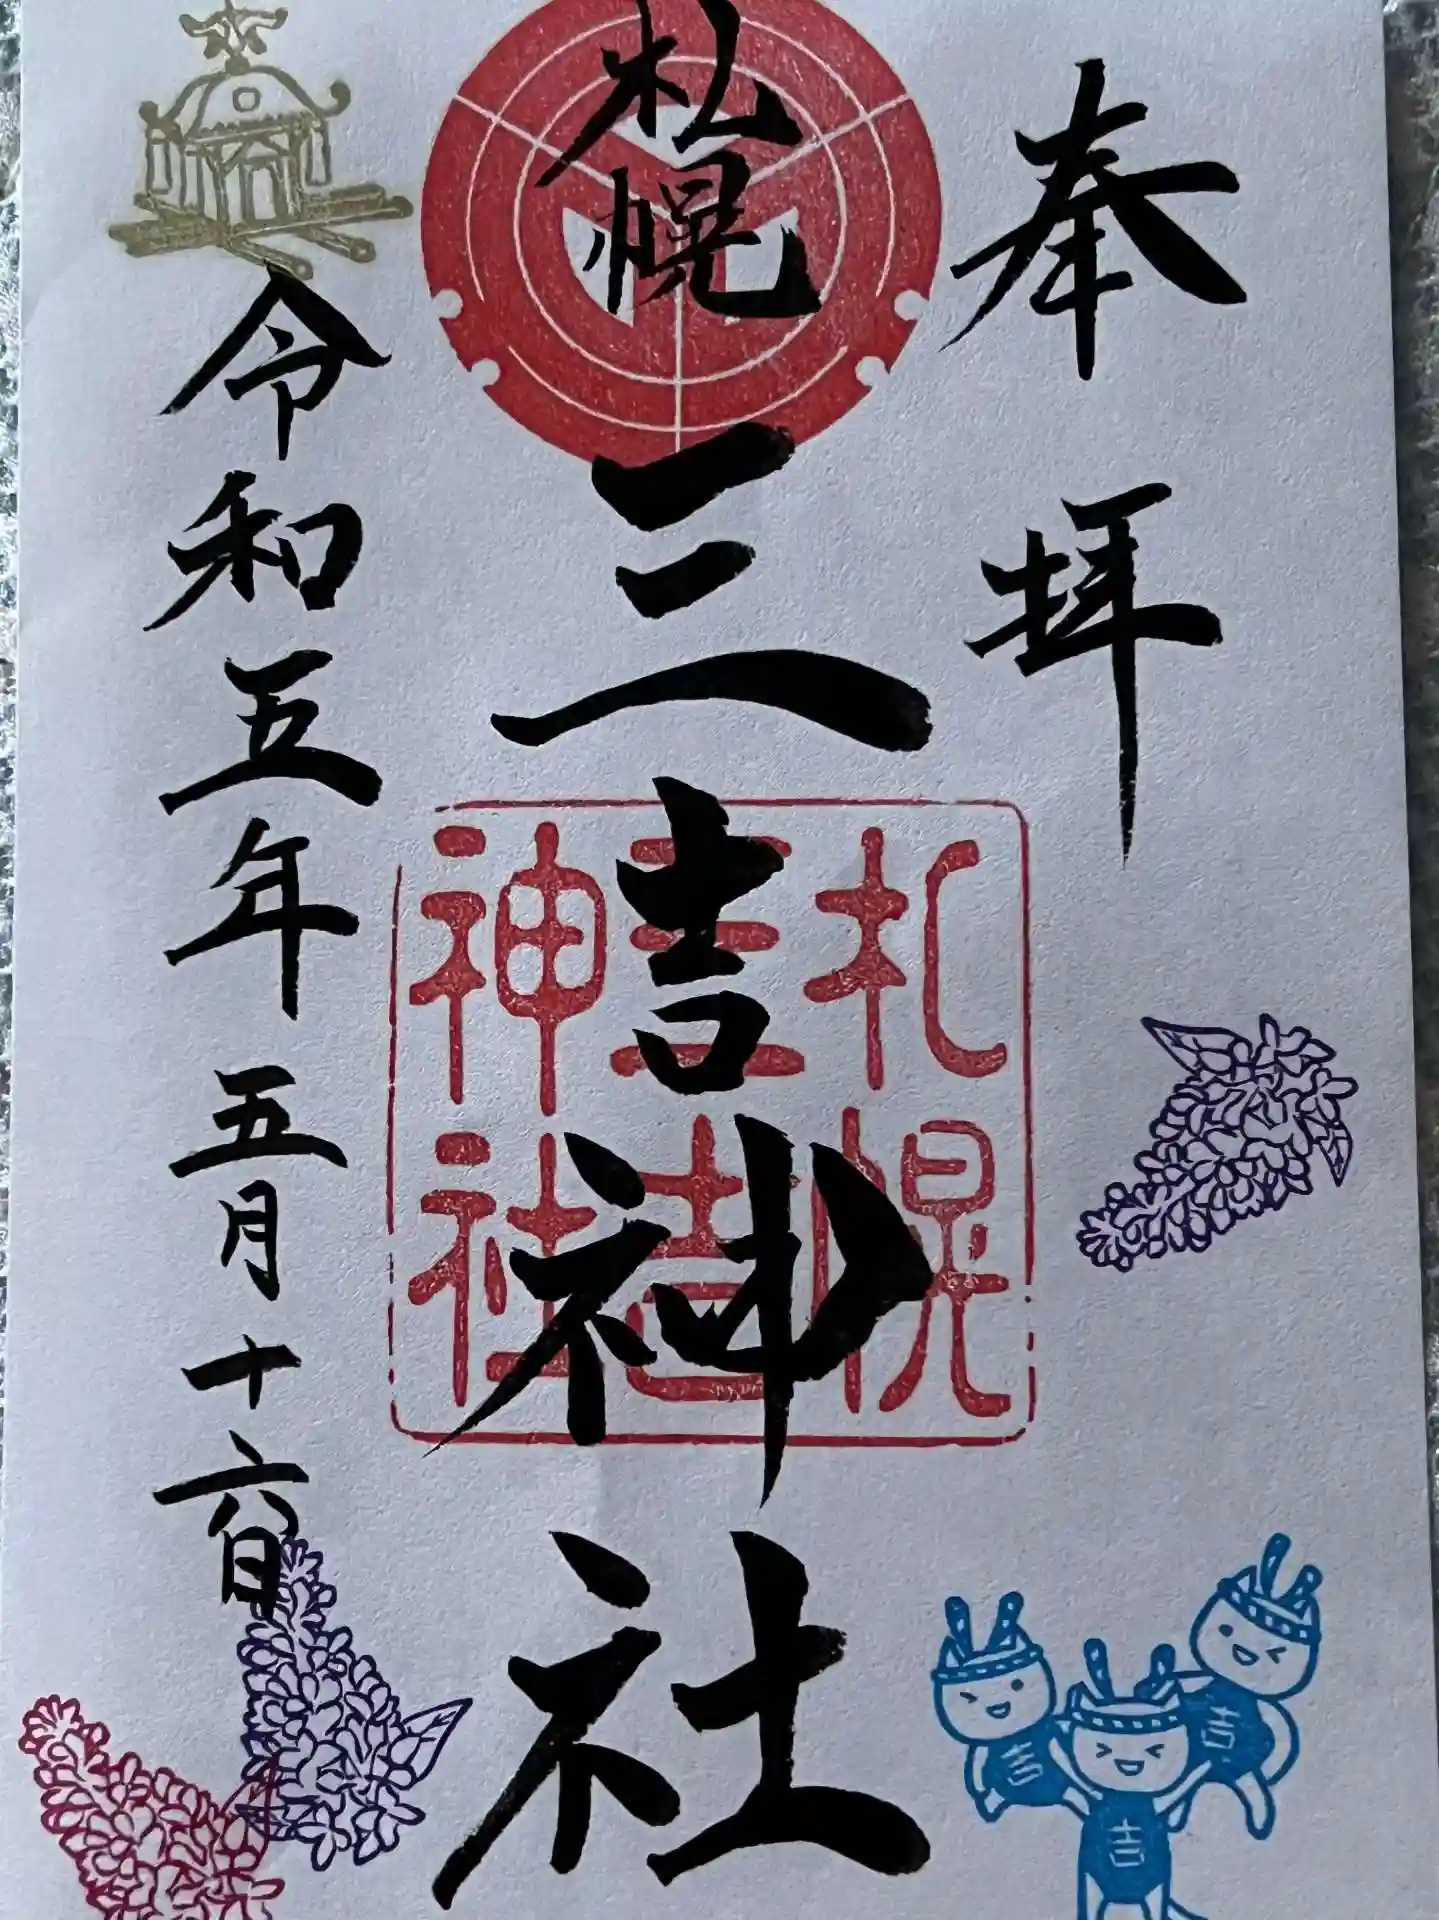 奉拝
札幌
三吉神社
札幌
三吉
神社
令和五年五月十六日
吉
吉
吉